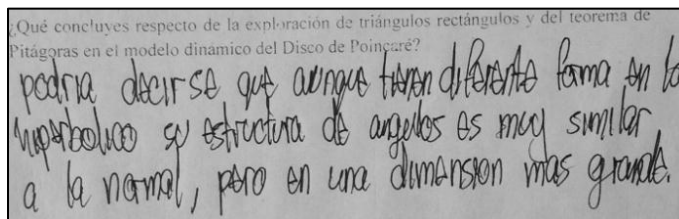 ¿Qué concluyes respecto de la exploración de triángulos rectángulos y del teorema de
Pitágoras en el modelo dinámico del Disco de Poincaré?
podria decirse que aunque tienen diferente forma en lo
hiperbolico su estructura de angulos es muy similar
a la normal, pero en una dimension mas grande.